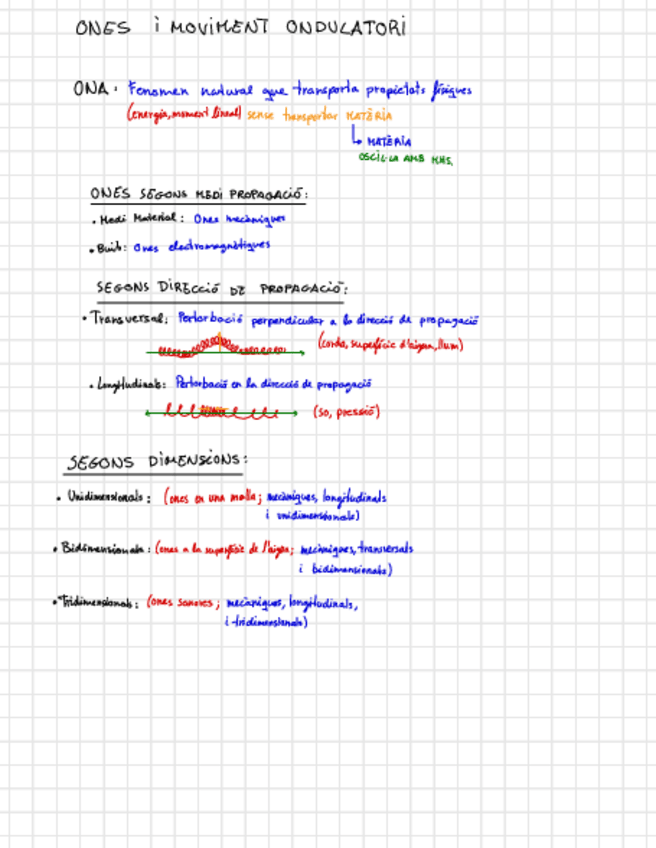 ONES i MOVIMENT ONDULATORI
ONA: Fenomen natural que transporta propietats físiques
(energia, moment lineal) sense transportar MATÈRIA
MATÈRIA
OSCIL·LA AMB MHS.
ONES SEGONS MEDI PROPAGACIÓ:
• Medi Material: Ones mecàniques
• Buit: Ones electromagnètiques
SEGONS DIRECCIÓ DE PROPAGACIÓ:
• Transversal: Pertorbació perpendicular a la direcció de propagació
(corda, superfície d'aigua, llum)
• Longitudinals: Pertorbació en la direcció de propagació
(so, pressió)
SEGONS DIMENSIONS:
• Unidimensionals: (ones en una molla; mecàniques, longitudinals
i unidimensionals)
• Bidimensionals: (ones a la superfície de l'aigua; mecàniques, transversals
i bidimensionals)
• Tridimensionals: (ones sonores; mecàniques, longitudinals,
i tridimensionals)